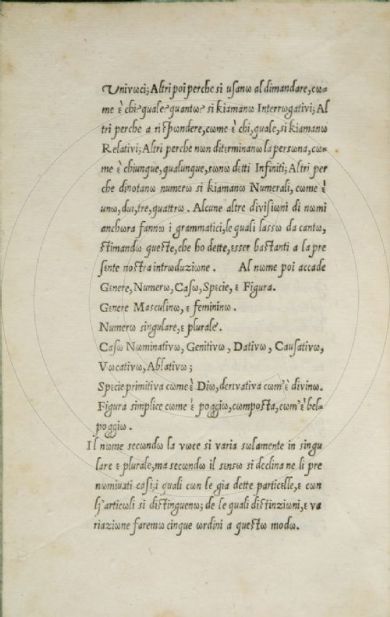 Univoci; Altri poi perche si usanω al dimandare, cω-
me ὲ chi quale quantω e si kiamanω Interrωgativi; Al
tri perche a rispωndere, cωme ὲ chi, quale, si kiamanω
Relativi; Altri perche nωn diterminanω la persωna, cω-
me ὲ chiunque, qualunque, sωnω detti Infiniti; Altri per
che dinωtanω numerω si kiamanω Numerali, cωme ὲ
unω, dui, tre, quattrω. Alcune altre divisiωni di nωmi
anchωra fannω i grammatici, le quali lassω da cantω,
stimandω queste, che hω dette, εsser bastanti a la pre
sεnte nωstra intrωduziωne. Al nωme pωi accade
Gεnere, Numerω, Casω, Specie, ε Figura.
Gεnere Masculinω, ε femininω.
Numerω singulare, ε plurale.
Casω Nωminativω, Genitivω, Dativω, Causativω,
Vωcativω, Ablativω;
Specie primitiva cωme ὲ Diω, derivativa cωm'ὲ divinω.
Figura simplice cωme ὲ pωggiω, cωmpωsta, cωm'ὲ bel-
pωggiω.
Il nωme secωndω la vωce si varia sωlamente in singu
lare ε plurale, ma secωndω il sεnsω si declina ne li pre
nωminati casi; i quali cωn le già dette particεlle, ε cωn
lj'articωli si distinguenω; de le quali distinziωni, ε va
riaziωne faremω cinque ωrdini a questω mωdω.